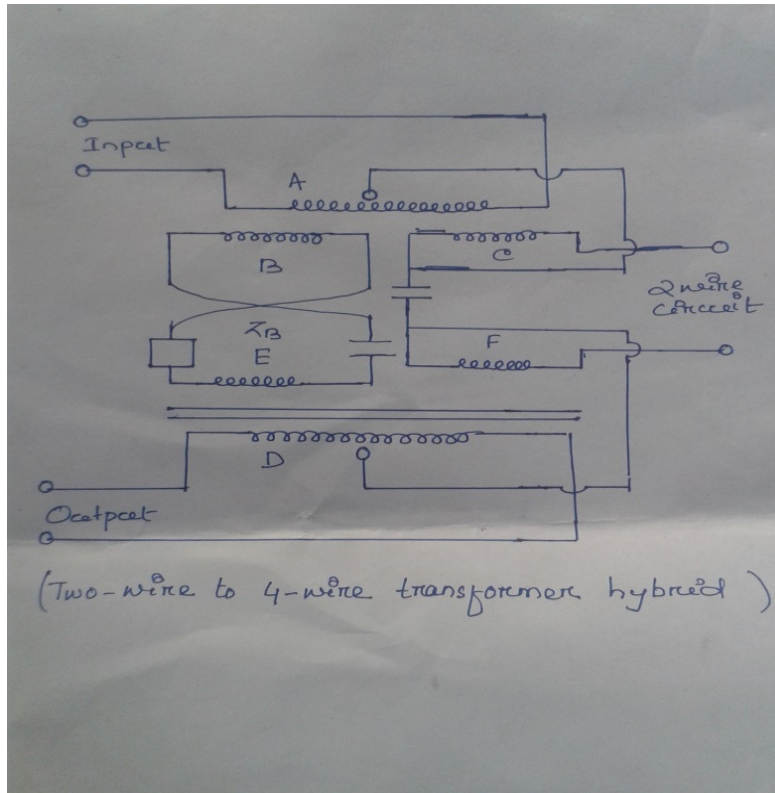 Input
A
B
C
2 wire
circuit
Z_B
E
F
D
Output
(Two-wire to 4-wire transformer hybrid)